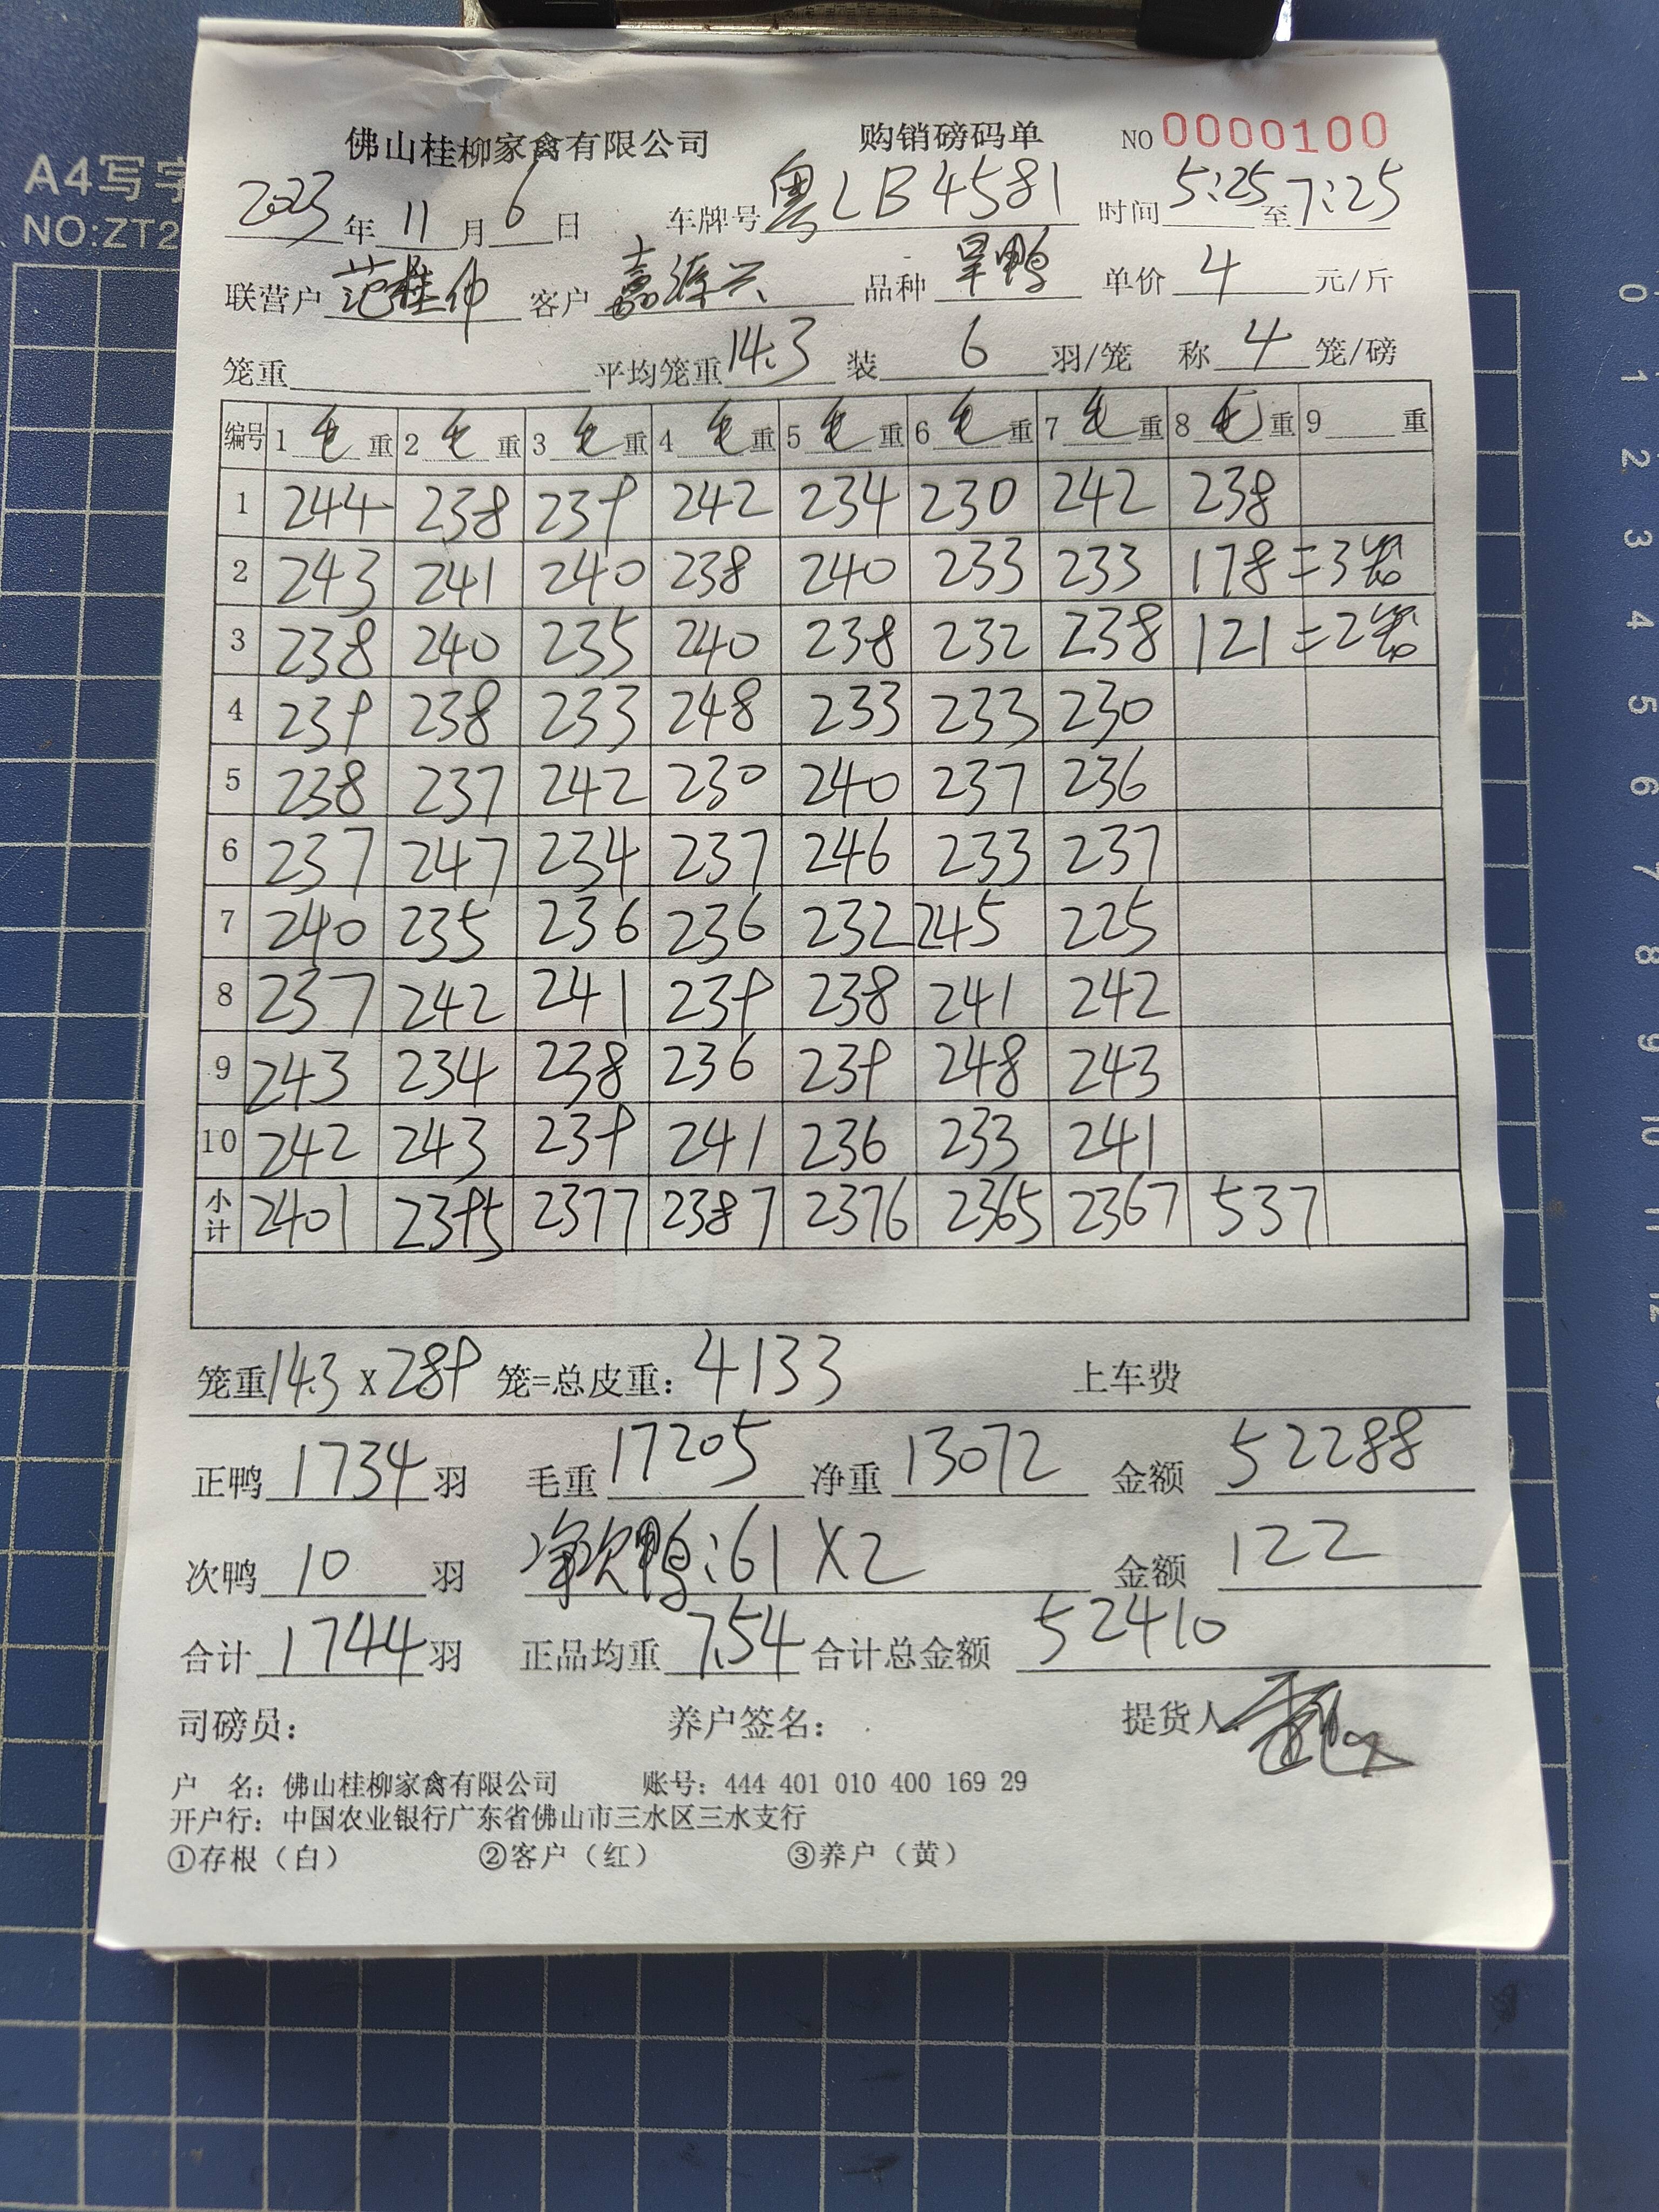 A4写字
NO:ZT2
佛山桂柳家禽有限公司 购销磅码单 NO 0000100
2023年11月6日 车牌号粤LB4581 时间5:25至7:25
联营户范桂仲 客户嘉源兴 品种旱鸭 单价4元/斤
笼重 平均笼重14.3 装6羽/笼 称4笼/磅
编号 1毛重 2毛重 3毛重 4毛重 5毛重 6毛重 7毛重 8毛重 9重
1 244 238 239 242 234 230 242 238
2 243 241 240 238 240 233 233 178=3笼
3 238 240 235 240 238 232 238 121=2笼
4 239 238 233 248 233 233 230
5 238 237 242 230 240 237 236
6 237 247 234 237 246 233 237
7 240 235 236 236 232 245 225
8 237 242 241 239 238 241 242
9 243 234 238 236 239 248 243
10 242 243 239 241 236 233 241
小计 2401 2395 2377 2387 2376 2365 2367 537
笼重14.3x289笼=总皮重：4133 上车费
正鸭1734羽 毛重17205 净重13072 金额52288
次鸭10羽 净次鸭:61X2 金额122
合计1744羽 正品均重7.54 合计总金额52410
司磅员： 养户签名： 提货人：
户 名：佛山桂柳家禽有限公司 账号：444 401 010 400 169 29
开户行：中国农业银行广东省佛山市三水区三水支行
①存根（白） ②客户（红） ③养户（黄）
0
1
2
3
4
5
6
7
8
9
10
11
12